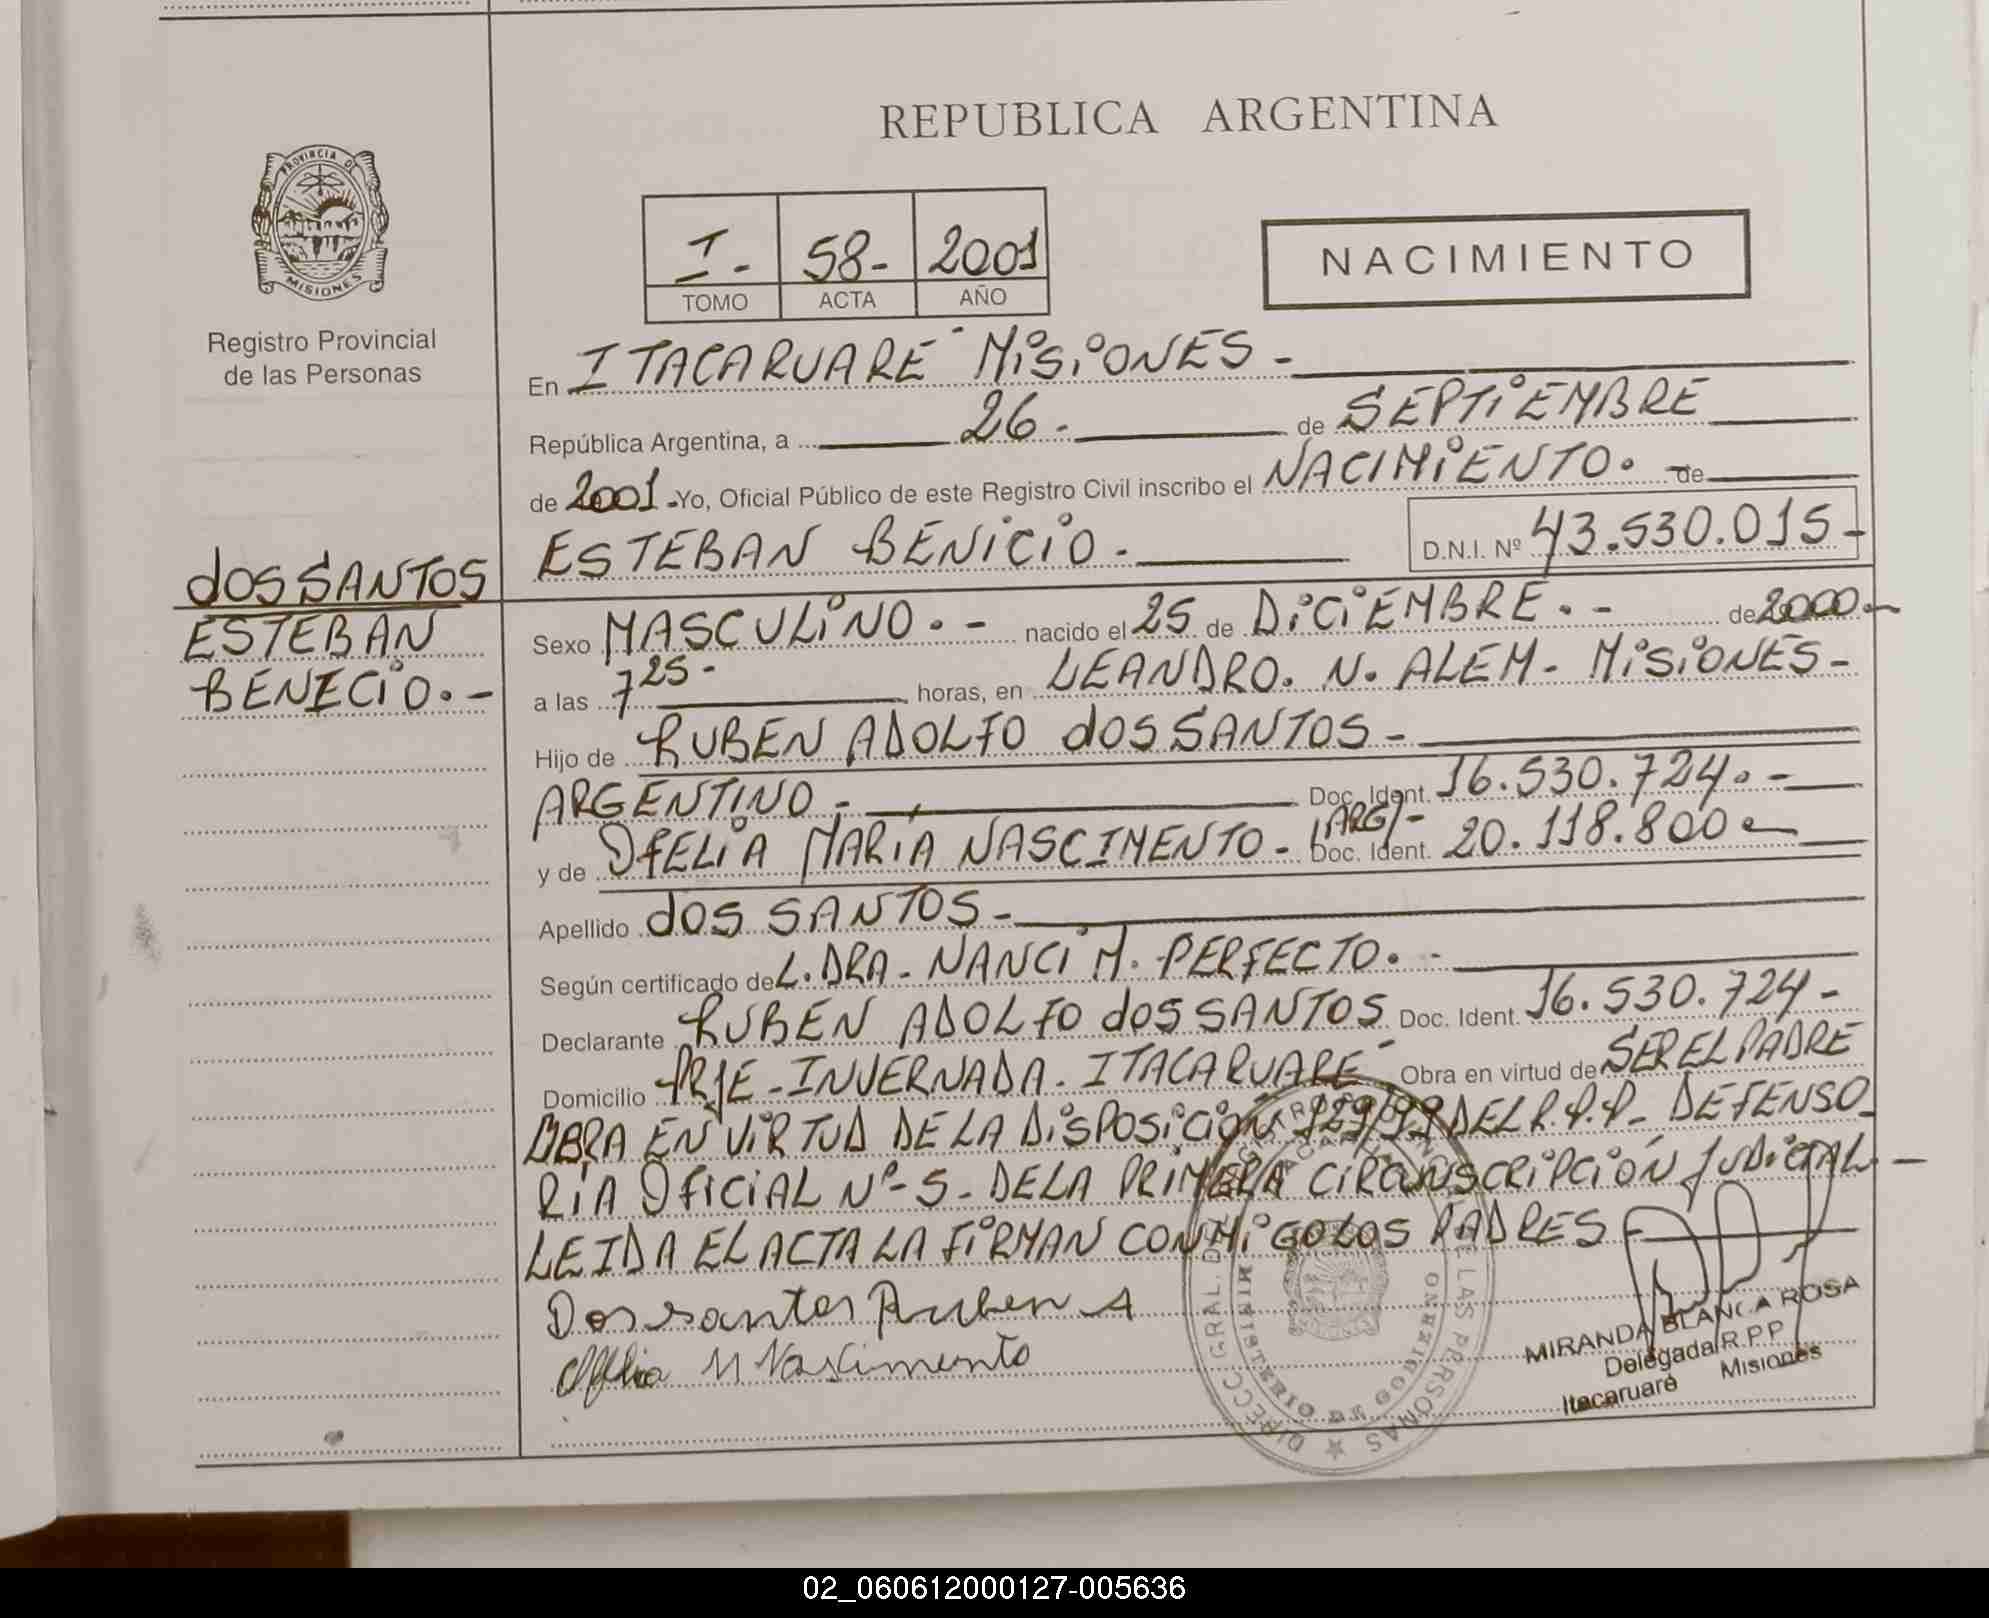 REPUBLICA ARGENTINA
PROVINCIA DE
MISIONES
I.- 58- 2001
TOMO ACTA AÑO
NACIMIENTO
Registro Provincial
de las Personas
En ITACARUARE´ MISIONES -
República Argentina, a 26.- de SEPTIEMBRE
de 2001.- Yo, Oficial Público de este Registro Civil inscribo el NACIMIENTO. - de
ESTEBAN BENICIO.- D.N.I. Nº 43.530.015-
dos SANTOS
ESTEBAN
BENECIO.-
Sexo MASCULINO.- nacido el 25 de DICIEMBRE.- de 2000.-
a las 7 25.- horas, en LEANDRO. N. ALEM- MISIONES-
Hijo de RUBEN ADOLFO dos SANTOS-
ARGENTINO.- Doc. Ident. 16.530.724.-
y de OFELIA MARÍA NASCIMENTO- (ARG)- Doc. Ident. 20.118.800-
Apellido dos SANTOS-
Según certificado de L. DRA- NANCI M. PERFECTO.-
Declarante RUBEN ADOLFO dos SANTOS Doc. Ident. 16.530.724-
Domicilio PRJE- INVERNADA- ITACARUARE´ Obra en virtud de SER EL PADRE
OBRA EN VIRTUD DE LA DISPOSICIÓN 729/99 DEL R.P.P- DEFENSO
RÍA OFICIAL Nº-5- DE LA PRIMERA CIRCUNSCRIPCIÓN JUDICIAL-
LEIDA EL ACTA LA FIRMAN CONMIGO LOS PADRES-
Dos santos Ruben A
Ofelia M Nascimento
DIRECC. GRAL. DE LAS PERSONAS
MINISTERIO DE GOBIERNO
MIRANDA BLANCA ROSA
Delegada R.P.P
Itacaruaré Misiones
02_060612000127-005636